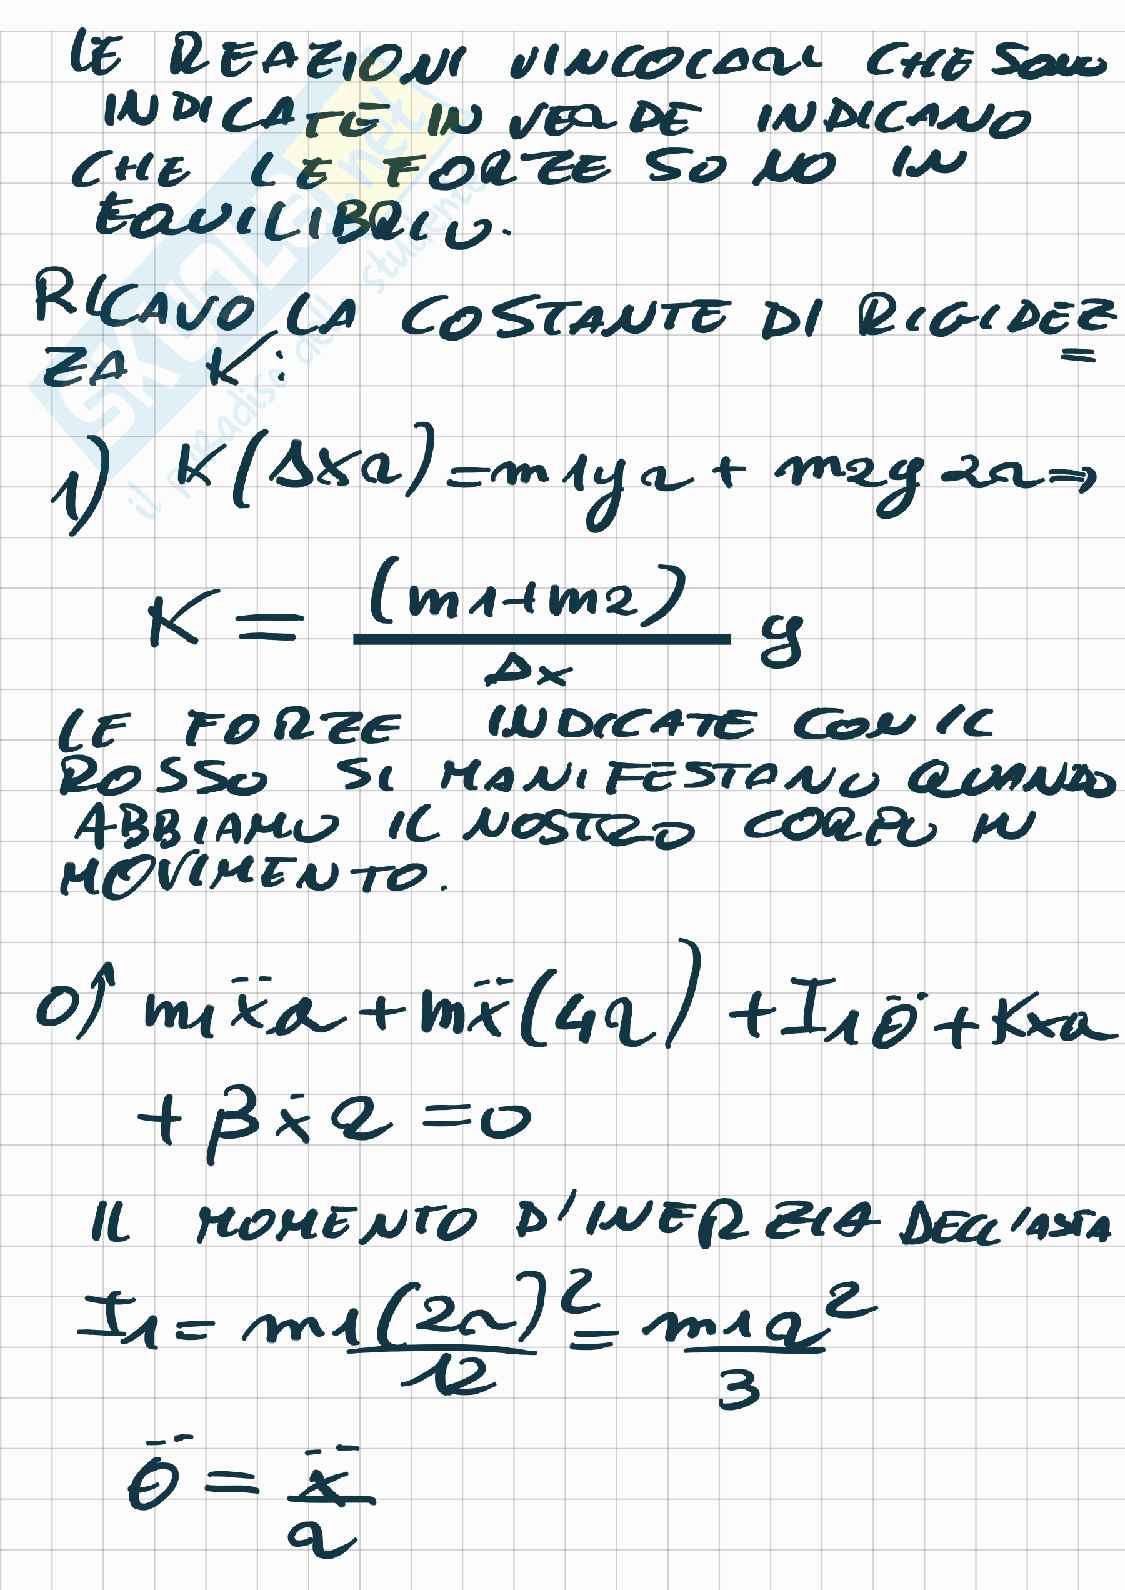 LE REAZIONI VINCOLARI CHE SONO
INDICATE IN VERDE INDICANO
CHE LE FORZE SONO IN
EQUILIBRIO.
RICAVO LA COSTANTE DI RIGIDEZ
ZA K:
1) K(Δxa) = m1ga + m2g2a ⇒
K = (m1+m2) / Δx g
LE FORZE INDICATE CON IL
ROSSO SI MANIFESTANO QUANDO
ABBIAMO IL NOSTRO CORPO IN
MOVIMENTO.
O) m1ẍa + mẍ(4a) + I1θ̈ + Kxa
+ βẋa = 0
IL MOMENTO D'INERZIA DELL'ASTA
I1 = m1(2a)²/12 = m1a²/3
θ̈ = ẍ/a
SKUOLA.net
il paradiso dello studente